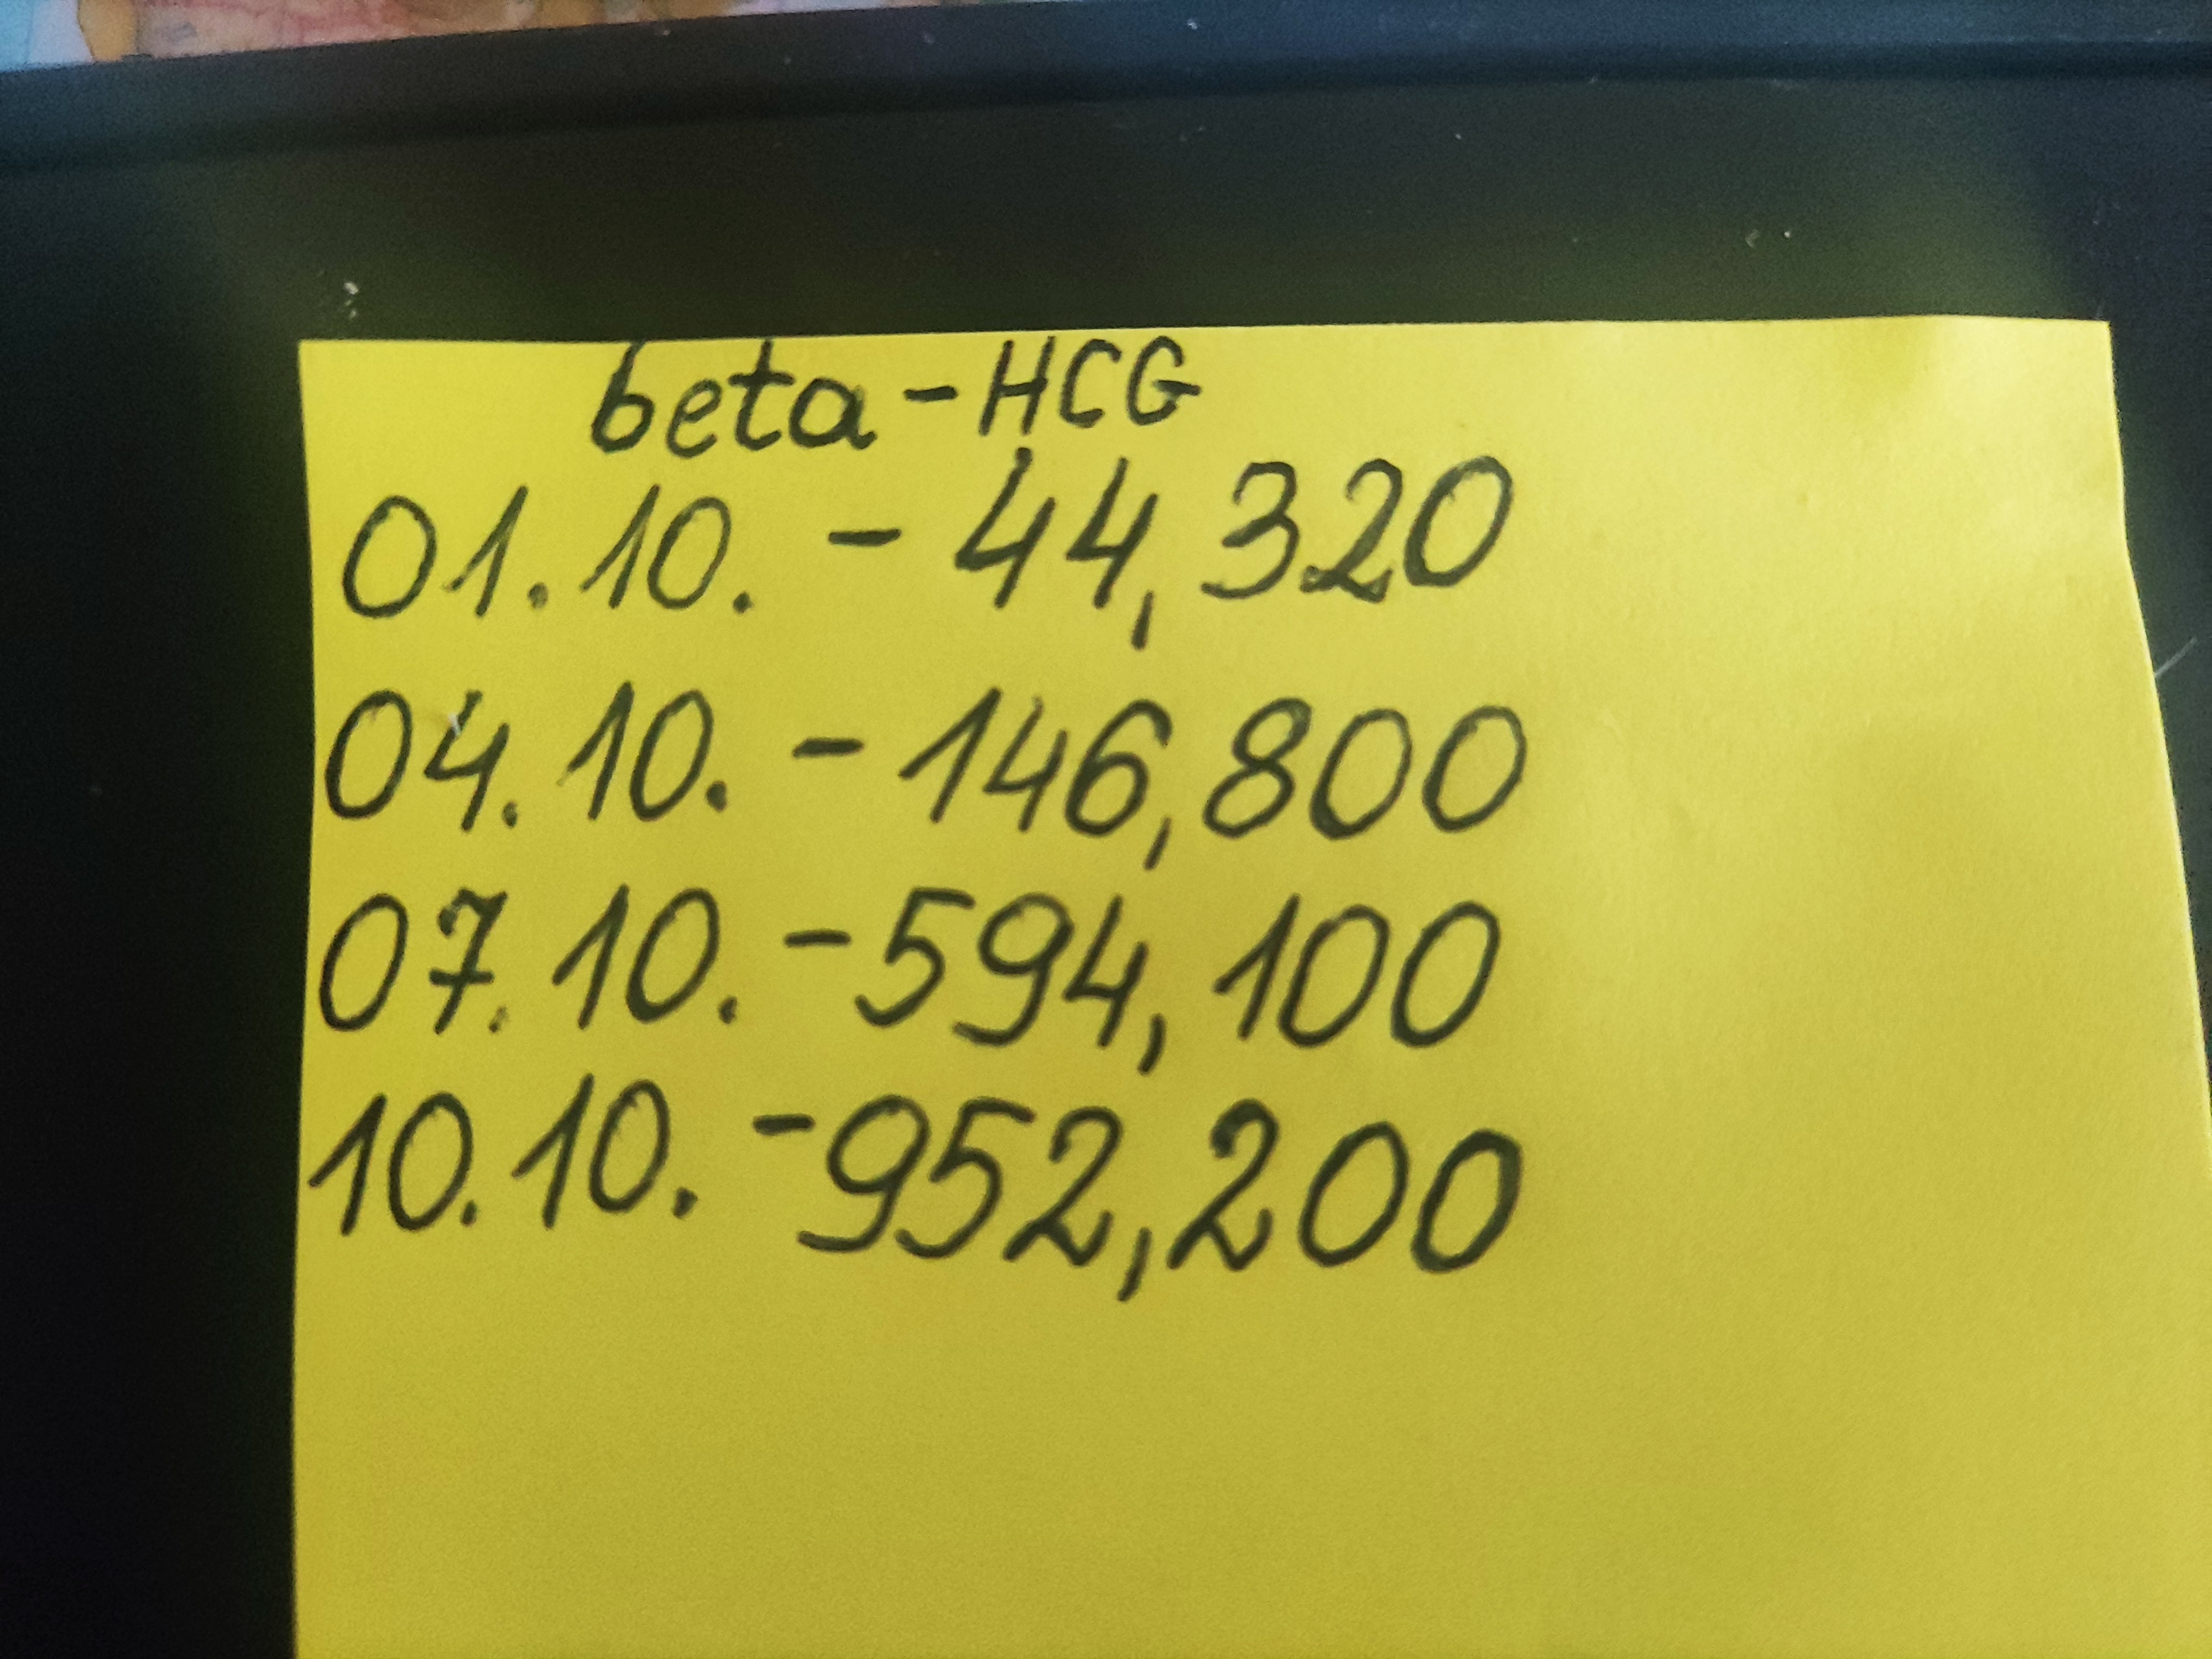 beta-HCG
01.10. - 44,320
04.10. - 146,800
07.10. - 594,100
10.10. - 952,200